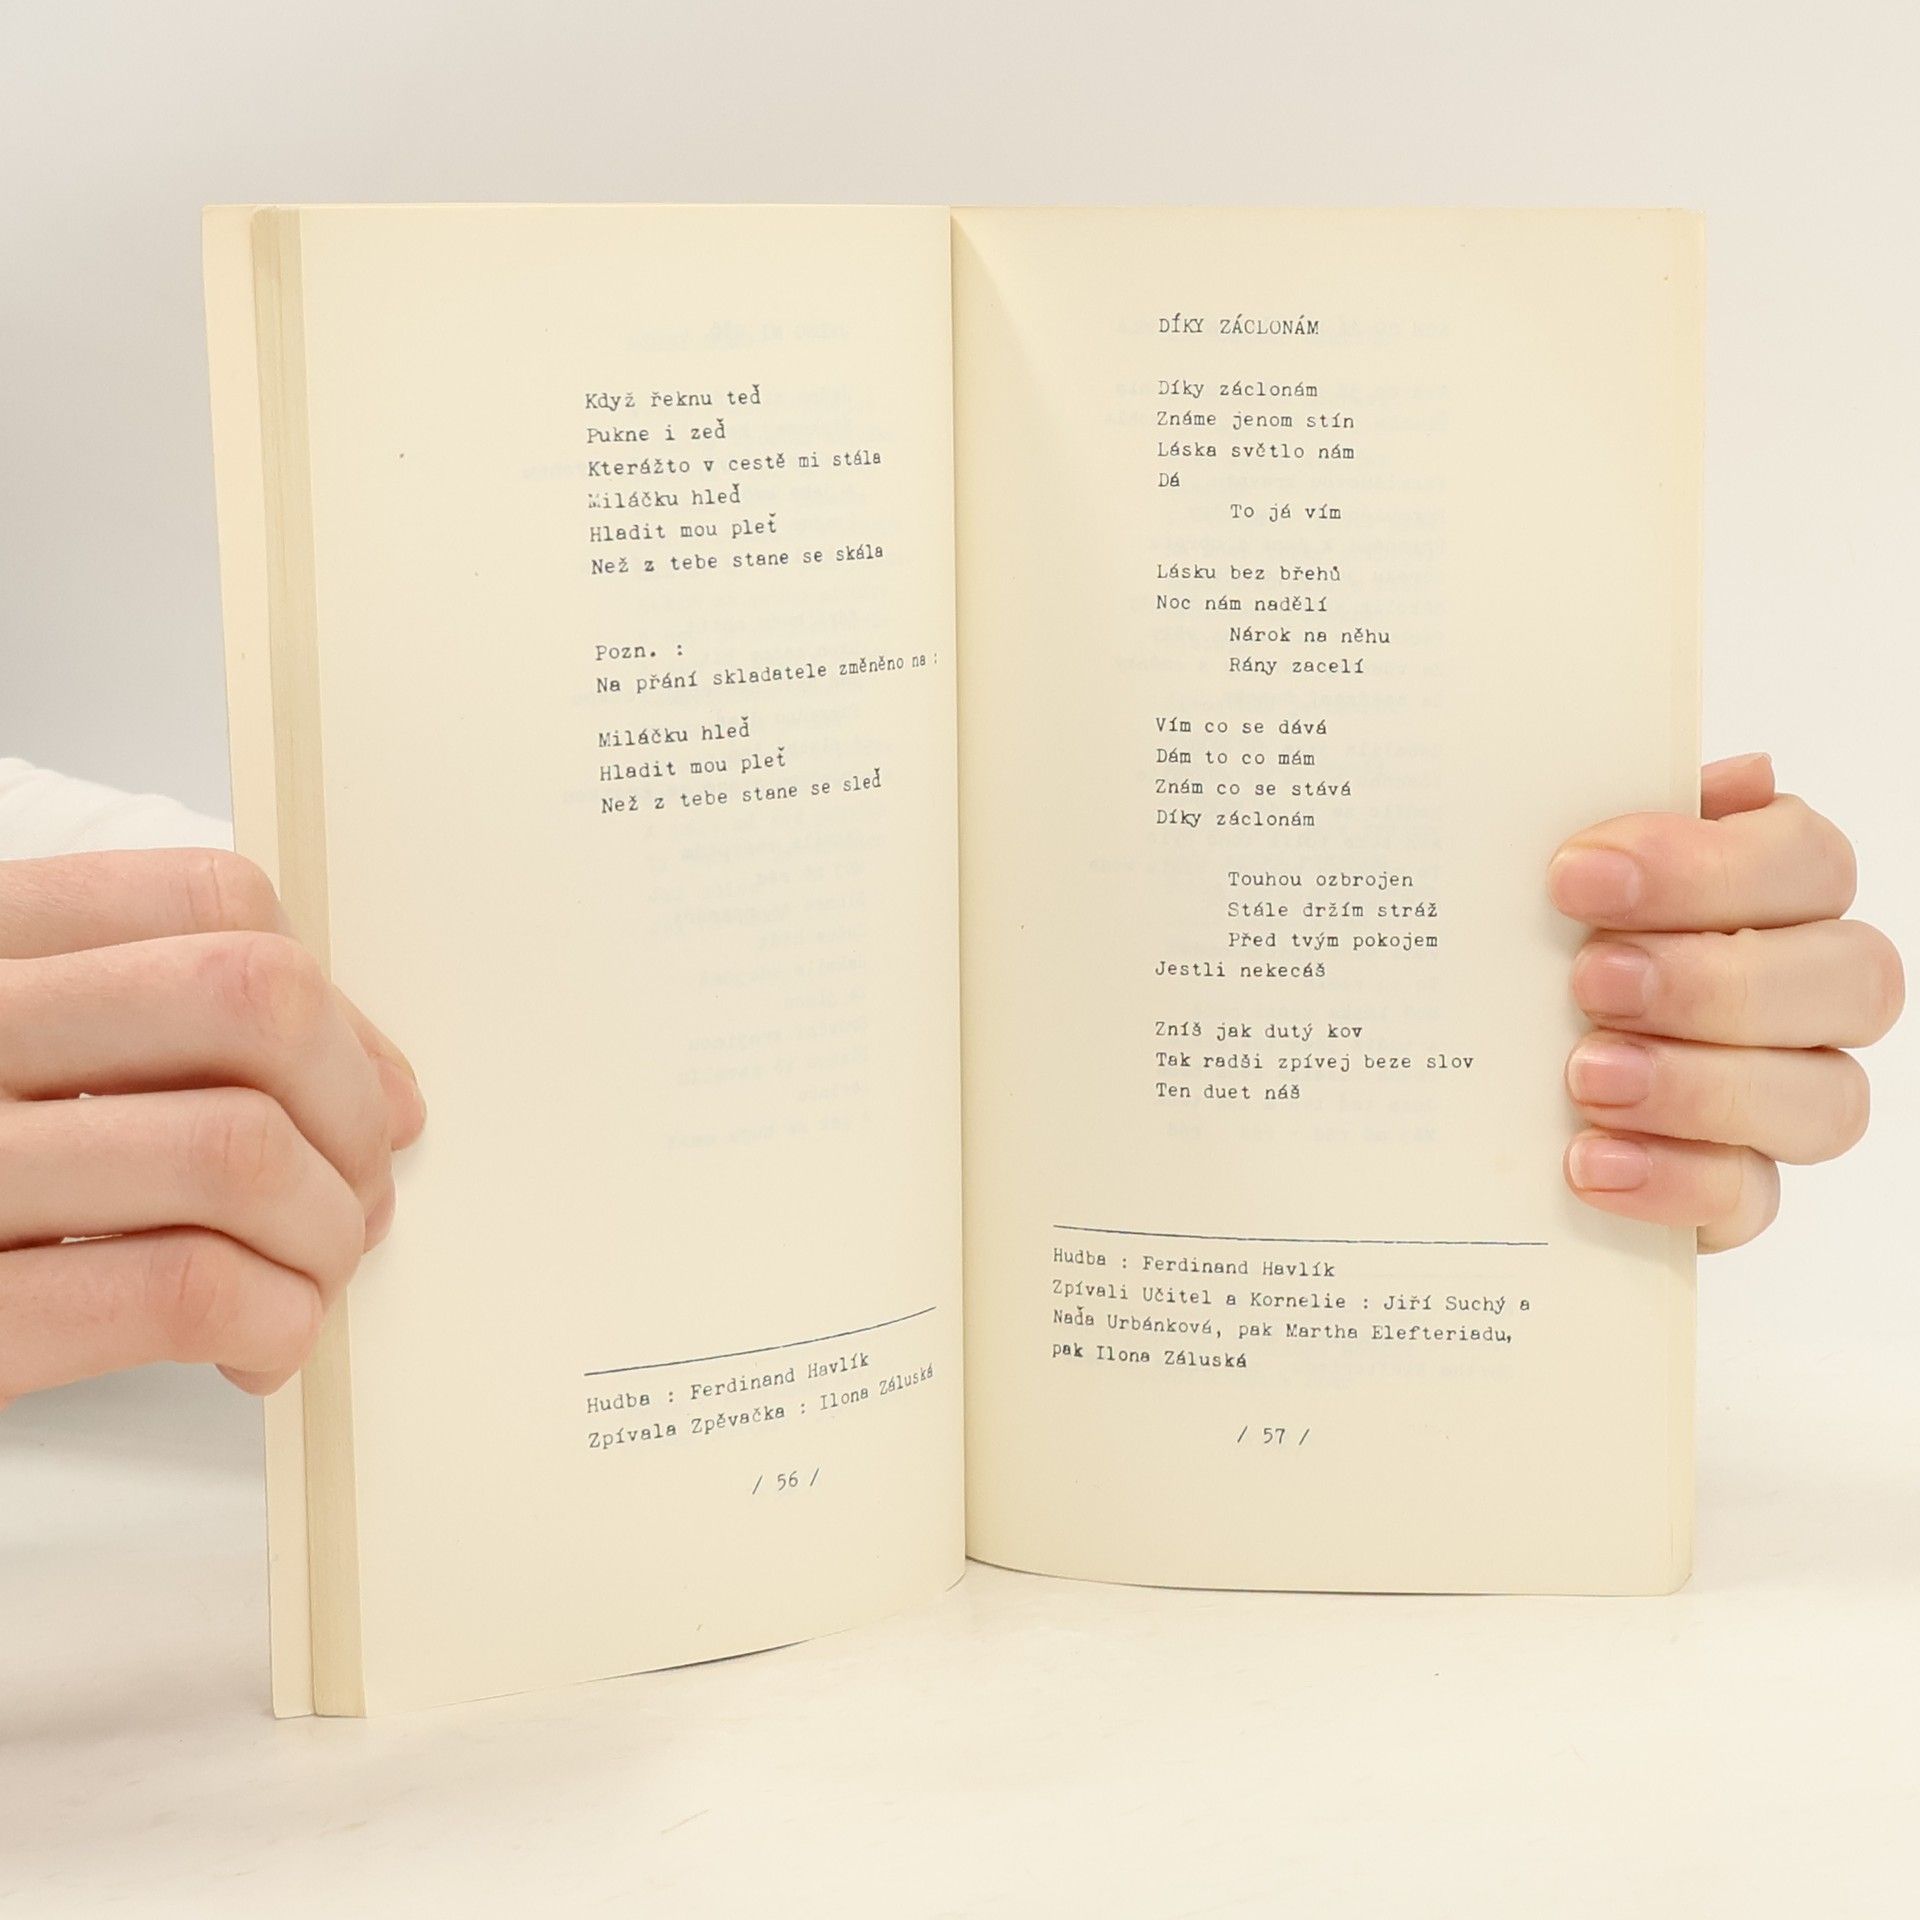 Když řeknu teď
Pukne i zeď
Kterážto v cestě mi stála
Miláčku hleď
Hladit mou pleť
Než z tebe stane se skála
Pozn. :
Na přání skladatele změněno na :
Miláčku hleď
Hladit mou pleť
Než z tebe stane se sleď
Hudba : Ferdinand Havlík
Zpívala Zpěvačka : Ilona Záluská
/ 56 /
DÍKY ZÁCLONÁM
Díky záclonám
Známe jenom stín
Láska světlo nám
Dá
To já vím
Lásku bez břehů
Noc nám nadělí
Nárok na něhu
Rány zacelí
Vím co se dává
Dám to co mám
Znám co se stává
Díky záclonám
Touhou ozbrojen
Stále držím stráž
Před tvým pokojem
Jestli nekecáš
Zníš jak dutý kov
Tak radši zpívej beze slov
Ten duet náš
Hudba : Ferdinand Havlík
Zpívali Učitel a Kornelie : Jiří Suchý a
Naďa Urbánková, pak Martha Elefteriadu,
pak Ilona Záluská
/ 57 /